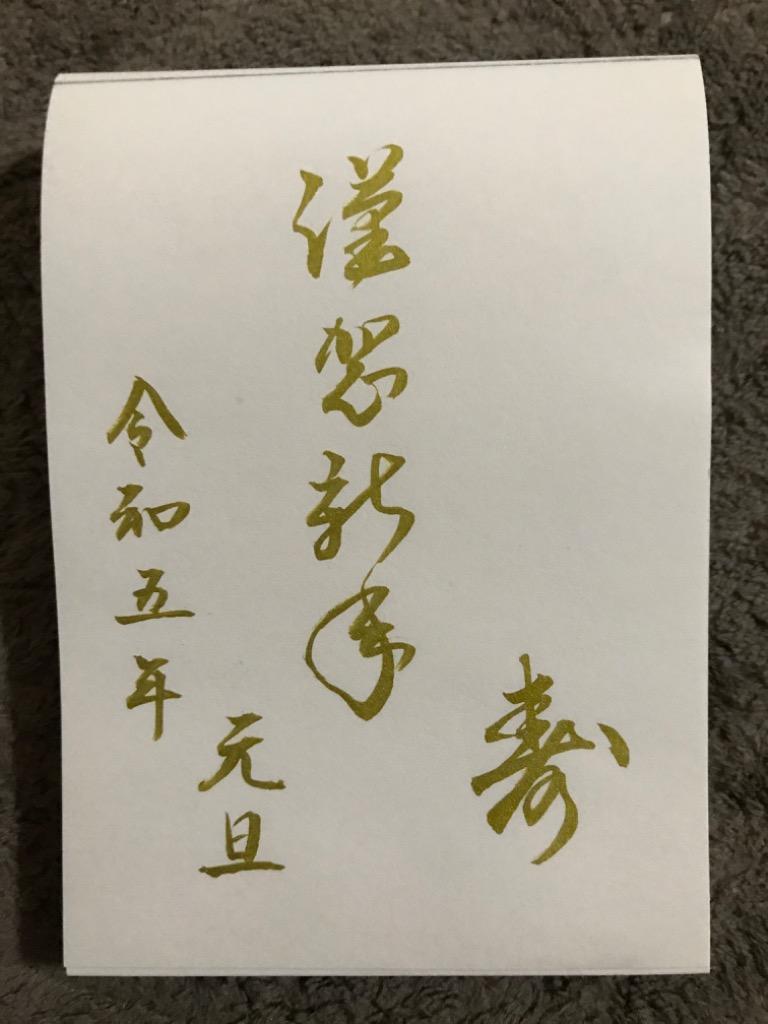 寿
謹賀新年
令和五年
元旦